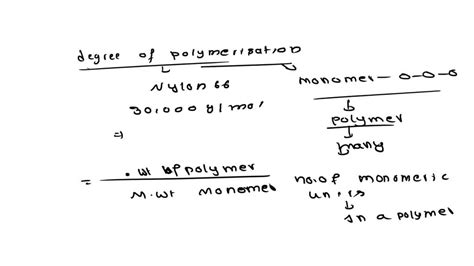 degree of polymerization
Nylon 66
30,000 g/mol
=>
monomer — o-o-o
polymer
many
= . wt of polymer
M.wt monomer
no.of monomeric
units
in a polymer